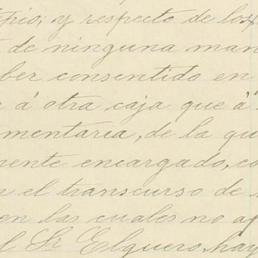 frio, y respecto de los
de ninguna man
ber consentido en
e á otra caja que á
mentaria, de la qu
mente encargado, co
n el transcurso de
en las cuales no ap
el Sr Elguero, hay